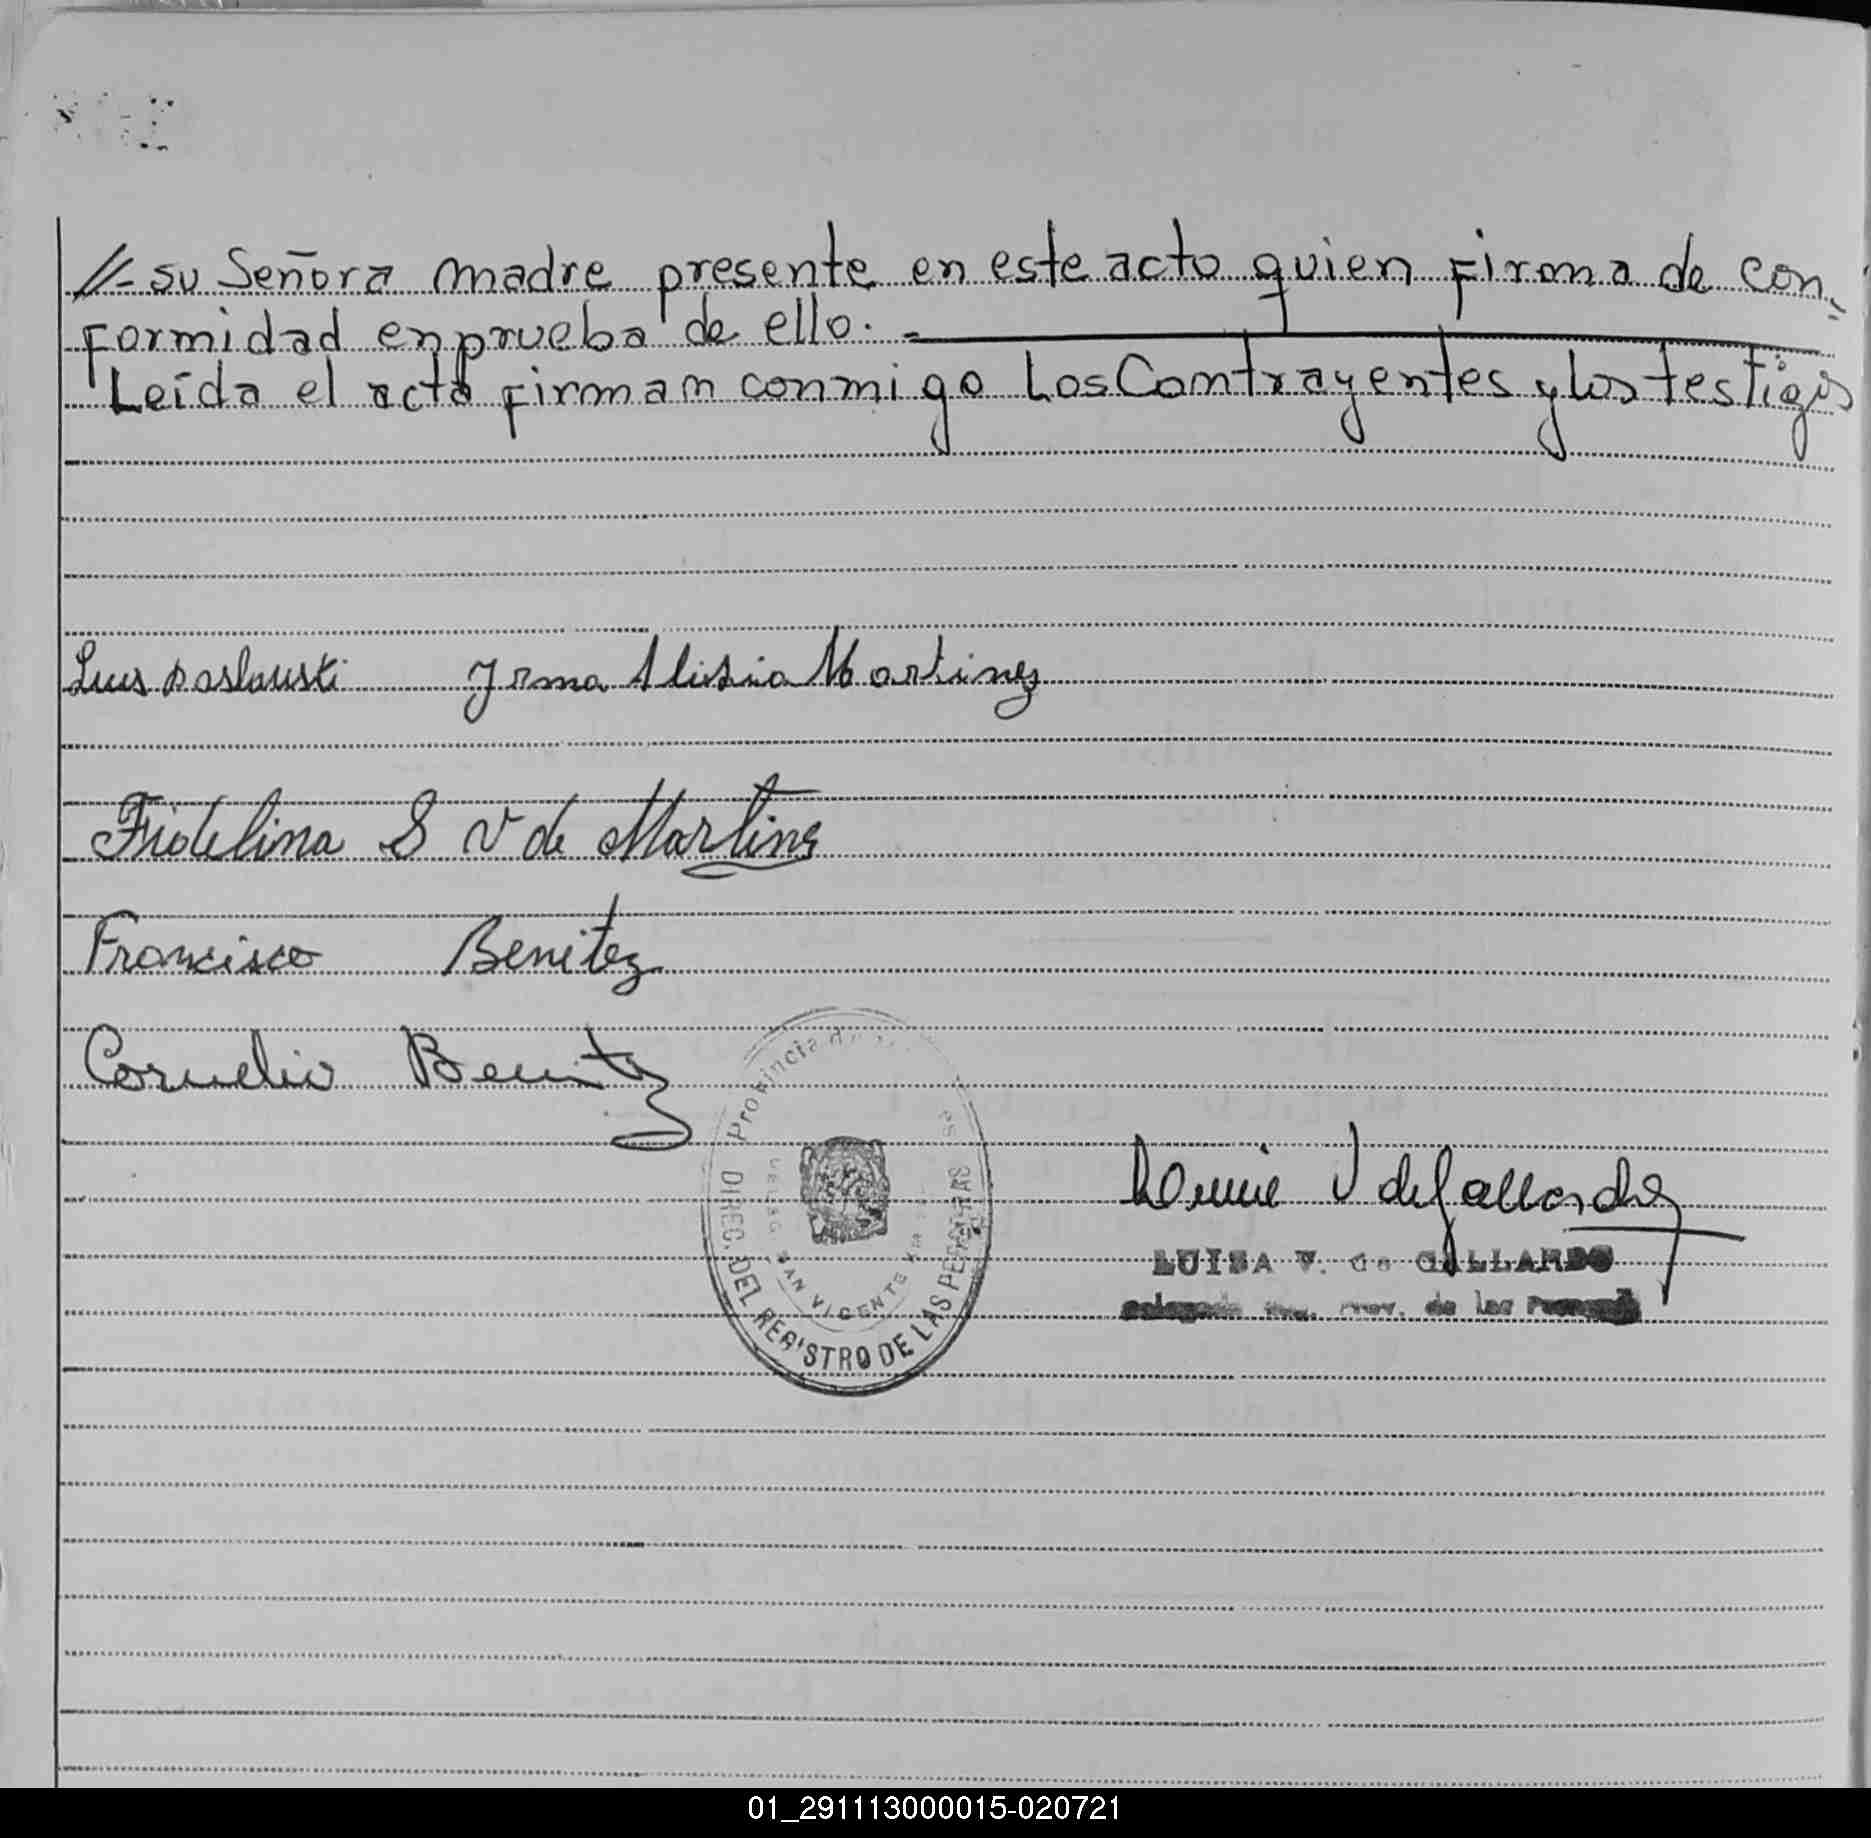 //- su Señora madre presente en este acto quien firma de con-
formidad en prueba de ello. -
Leída el acto firman conmigo Los Contrayentes y los testigos
Luis Paslauski Irma Alisia Martinez
Fidelina S V de Martins
Francisco Benitez
Cornelio Benitez
Provincia de
DIREC. DEL REGISTRO DE LAS PERSONAS
DELEG. SAN VICENTE KM
V de Gallardo
LUISA V. de GALLARDO
Delegada Reg. Prov. de las Personas
01_291113000015-020721